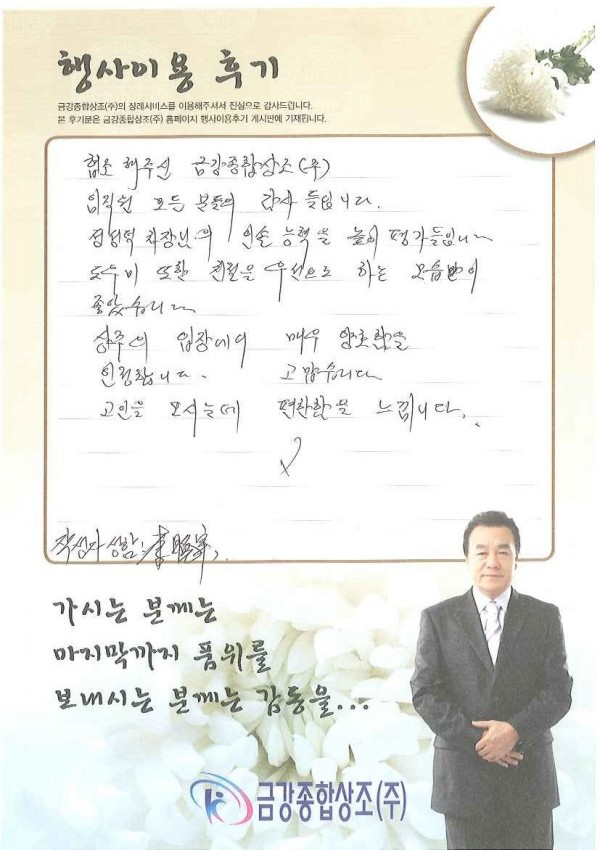 행사이용 후기
금강종합상조(주)의 장례서비스를 이용해주셔서 진심으로 감사드립니다.
본 후기분은 금강종합상조(주) 홈페이지 행사이용후기 게시판에 기재됩니다.
협조 해주신 금강종합상조(주)
임직원 모든 분들의 감사 들입니다.
차장님의 인솔 능력을 높이 평가들입니다
도우미 또한 친절을 우선으로 하는 모습
좋았습니다
상주의 입장에서 매우 양호함을
인정합니다. 고맙습니다
고인을 모시는데 편안함을 느낍니다.
작성자 성함: 李
가시는 분께는
마지막까지 품위를
보내시는 분께는 감동을...
금강종합상조(주)